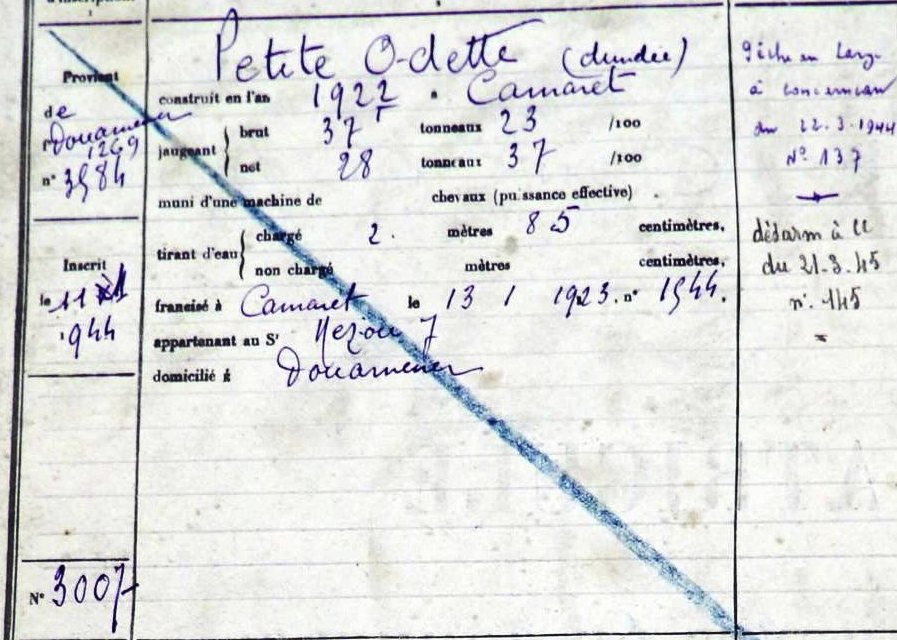 Provient
de
Douarnenez
1269
n° 3984
Inscrit
le 11
1944
N° 3007
Petite Odette (dundée)
construit en l'an 1922 à Camaret
jaugeant
brut 37 tonneaux 23 /100
net 28 tonneaux 37 /100
muni d'une machine de chevaux (puissance effective)
tirant d'eau
chargé 2. mètres 85 centimètres.
non chargé mètres centimètres.
francisé à Camaret le 13 1 1923. n° 1944.
appartenant au Sr
domicilié à Douarnenez
Pêche au large
à Concarneau
du 22.3.1944
N° 137
désarm à CC
du 21.3.45
n° 145